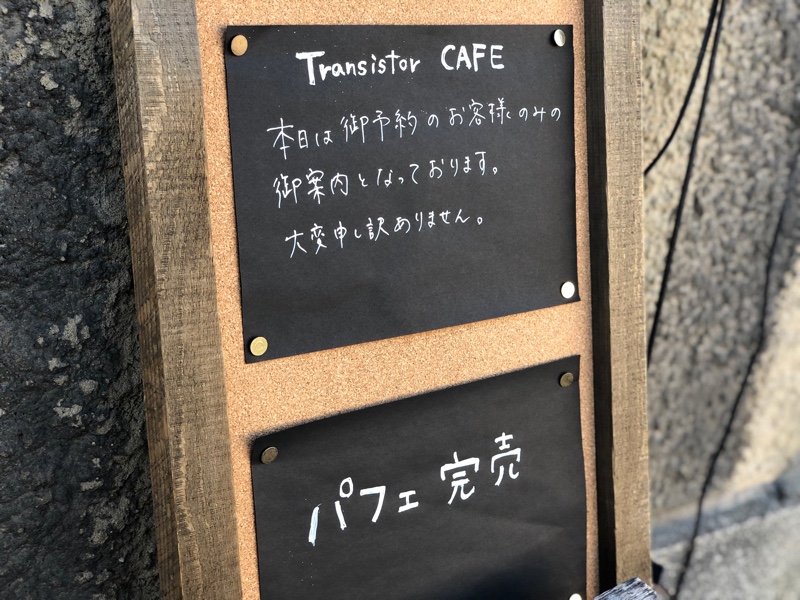 Transistor CAFE
本日は御予約のお客様のみの
御案内となっております。
大変申し訳ありません。
パフェ 完売